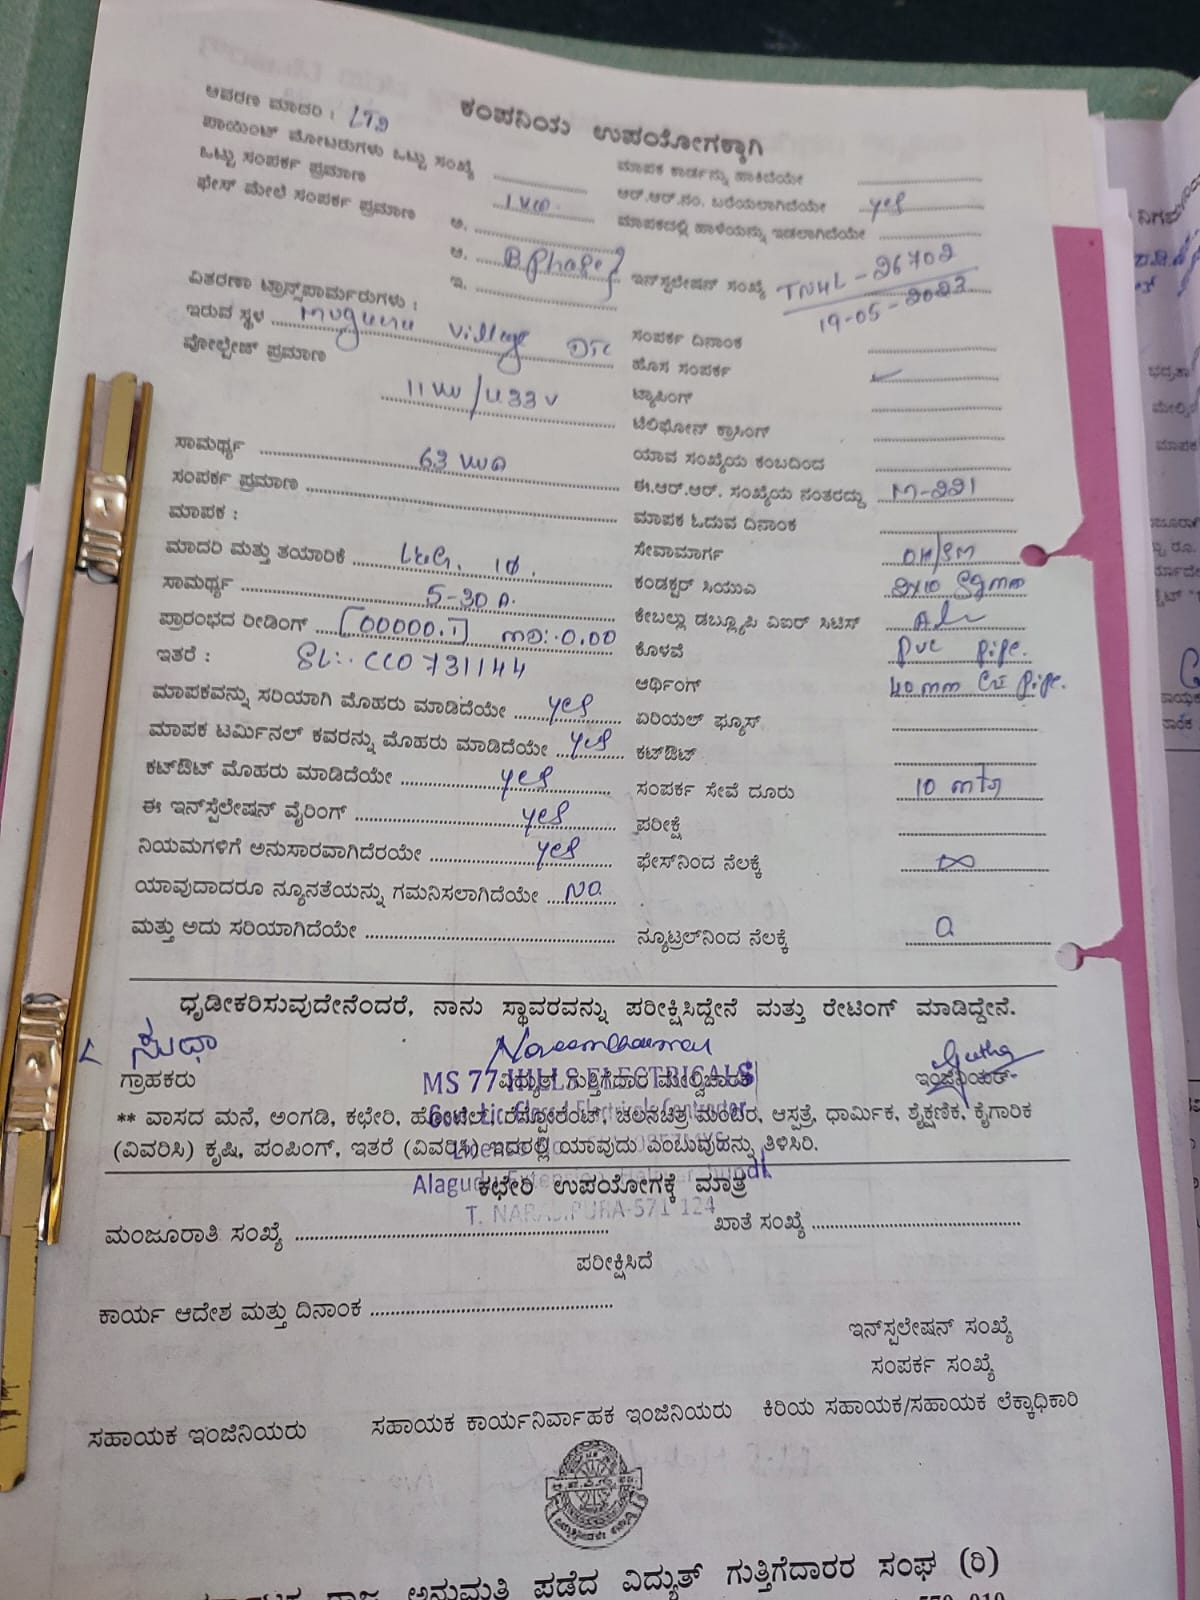 ಕಂಪನಿಯ ಉಪಯೋಗಕ್ಕಾಗಿ
ಆವರಣ ಮಾದರಿ : LT2
ಪಾಯಿಂಟ್ ಮೋಟರುಗಳು ಒಟ್ಟು ಸಂಖ್ಯೆ
ಮಾಪಕ ಕಾರ್ಡನ್ನು ಹಾಕಿದೆಯೇ
ಒಟ್ಟು ಸಂಪರ್ಕ ಪ್ರಮಾಣ 1 KW.
ಆರ್.ಆರ್.ನಂ. ಬರೆಯಲಾಗಿದೆಯೇ yes
ಫೇಸ್ ಮೇಲೆ ಸಂಪರ್ಕ ಪ್ರಮಾಣ ಅ.
ಮಾಪಕದಲ್ಲಿ ಹಾಳೆಯನ್ನು ಇಡಲಾಗಿದೆಯೇ
ಆ. B Phase
ಇ.
ಇನ್‌ಸ್ಟಲೇಷನ್ ಸಂಖ್ಯೆ TNHL-26702
19-05-2023
ವಿತರಣಾ ಟ್ರಾನ್ಸ್‌ಫಾರ್ಮರುಗಳು :
ಇರುವ ಸ್ಥಳ Muguru Village DTC
ಸಂಪರ್ಕ ದಿನಾಂಕ
ವೋಲ್ಟೇಜ್ ಪ್ರಮಾಣ
ಹೊಸ ಸಂಪರ್ಕ ✓
11 KV/433 V
ಟ್ಯಾಪಿಂಗ್
ಟೆಲಿಫೋನ್ ಕ್ರಾಸಿಂಗ್
ಸಾಮರ್ಥ್ಯ 63 KVA
ಯಾವ ಸಂಖ್ಯೆಯ ಕಂಬದಿಂದ
ಸಂಪರ್ಕ ಪ್ರಮಾಣ
ಈ.ಆರ್.ಆರ್. ಸಂಖ್ಯೆಯ ನಂತರದ್ದು M-221
ಮಾಪಕ :
ಮಾಪಕ ಓದುವ ದಿನಾಂಕ
ಮಾದರಿ ಮತ್ತು ತಯಾರಿಕೆ L&G. 1Ø.
ಸೇವಾಮಾರ್ಗ OH/SM
ಸಾಮರ್ಥ್ಯ 5-30 A.
ಕಂಡಕ್ಟರ್ ಸಿಯುಎ 2x10 Sqmm
ಪ್ರಾರಂಭದ ರೀಡಿಂಗ್ [00000.1] MD:-0.00
ಕೇಬಲ್ಲು ಡಬ್ಲ್ಯೂಪಿ ವಿಐಆರ್ ಸಿಟಿಸ್
ಇತರೆ : SL:- CCO731144
ಕೊಳವೆ PVC pipe.
ಮಾಪಕವನ್ನು ಸರಿಯಾಗಿ ಮೊಹರು ಮಾಡಿದೆಯೇ yes
ಆರ್ಥಿಂಗ್ 40mm GI pipe.
ಮಾಪಕ ಟರ್ಮಿನಲ್ ಕವರನ್ನು ಮೊಹರು ಮಾಡಿದೆಯೇ yes
ಏರಿಯಲ್ ಫ್ಯೂಸ್
ಕಟ್‌ಔಟ್ ಮೊಹರು ಮಾಡಿದೆಯೇ yes
ಕಟ್‌ಔಟ್
ಈ ಇನ್‌ಸ್ಟೆಲೇಷನ್ ವೈರಿಂಗ್ yes
ಸಂಪರ್ಕ ಸೇವೆ ದೂರು 10 mtr
ನಿಯಮಗಳಿಗೆ ಅನುಸಾರವಾಗಿದೆರಯೇ yes
ಪರೀಕ್ಷೆ
ಯಾವುದಾದರೂ ನ್ಯೂನತೆಯನ್ನು ಗಮನಿಸಲಾಗಿದೆಯೇ NO.
ಫೇಸ್‌ನಿಂದ ನೆಲಕ್ಕೆ ∞
ಮತ್ತು ಅದು ಸರಿಯಾಗಿದೆಯೇ
ನ್ಯೂಟ್ರಲ್‌ನಿಂದ ನೆಲಕ್ಕೆ 0
ಧೃಡೀಕರಿಸುವುದೇನೆಂದರೆ, ನಾನು ಸ್ಥಾವರವನ್ನು ಪರೀಕ್ಷಿಸಿದ್ದೇನೆ ಮತ್ತು ರೇಟಿಂಗ್ ಮಾಡಿದ್ದೇನೆ.
ಸುಧಾ
ಗ್ರಾಹಕರು ವಿದ್ಯುತ್ ಗುತ್ತಿಗೆದಾರ ಮೇಲ್ವಿಚಾರಕ ಇಂಜಿನಿಯರ್
MS 77 HILLS ELECTRICALS
** ವಾಸದ ಮನೆ, ಅಂಗಡಿ, ಕಛೇರಿ, ಹೋಟೆಲ್, ರೆಸ್ಟೋರೆಂಟ್, ಚಲನಚಿತ್ರ ಮಂದಿರ, ಆಸ್ಪತ್ರೆ, ಧಾರ್ಮಿಕ, ಶೈಕ್ಷಣಿಕ, ಕೈಗಾರಿಕ
(ವಿವರಿಸಿ) ಕೃಷಿ, ಪಂಪಿಂಗ್, ಇತರೆ (ವಿವರಿಸಿ) ಇದರಲ್ಲಿ ಯಾವುದು ಎಂಬುವುಹನ್ನು ತಿಳಿಸಿರಿ.
ಕಛೇರಿ ಉಪಯೋಗಕ್ಕೆ ಮಾತ್ರ
T. NARASIPURA-571 124
ಮಂಜೂರಾತಿ ಸಂಖ್ಯೆ
ಖಾತೆ ಸಂಖ್ಯೆ
ಪರೀಕ್ಷಿಸಿದೆ
ಕಾರ್ಯ ಆದೇಶ ಮತ್ತು ದಿನಾಂಕ
ಇನ್‌ಸ್ಟಲೇಷನ್ ಸಂಖ್ಯೆ
ಸಂಪರ್ಕ ಸಂಖ್ಯೆ
ಸಹಾಯಕ ಇಂಜಿನಿಯರು ಸಹಾಯಕ ಕಾರ್ಯನಿರ್ವಾಹಕ ಇಂಜಿನಿಯರು ಕಿರಿಯ ಸಹಾಯಕ/ಸಹಾಯಕ ಲೆಕ್ಕಾಧಿಕಾರಿ
ರಾಜ್ಯ ಅನುಮತಿ ಪಡೆದ ವಿದ್ಯುತ್ ಗುತ್ತಿಗೆದಾರರ ಸಂಘ (ರಿ)